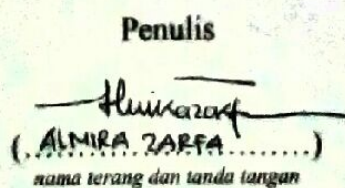 Penulis
( ALMIRA ZARFA )
nama terang dan tanda tangan